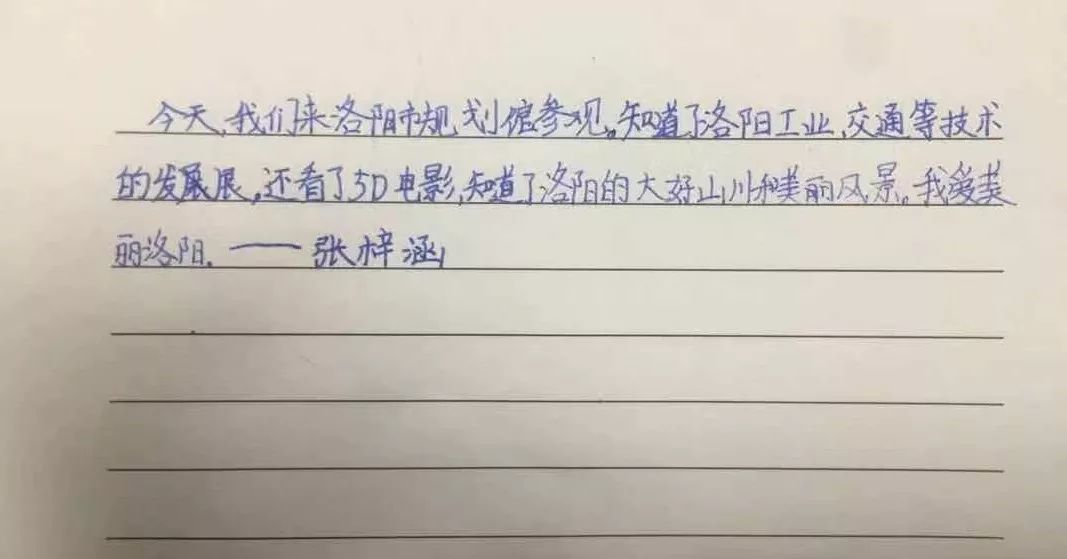 今天,我们来洛阳市规划馆参观。知道了洛阳工业,交通等技术
的发展展,还看了5D电影,知道了洛阳的大好山川和美丽风景。我爱美
丽洛阳. ——张梓涵